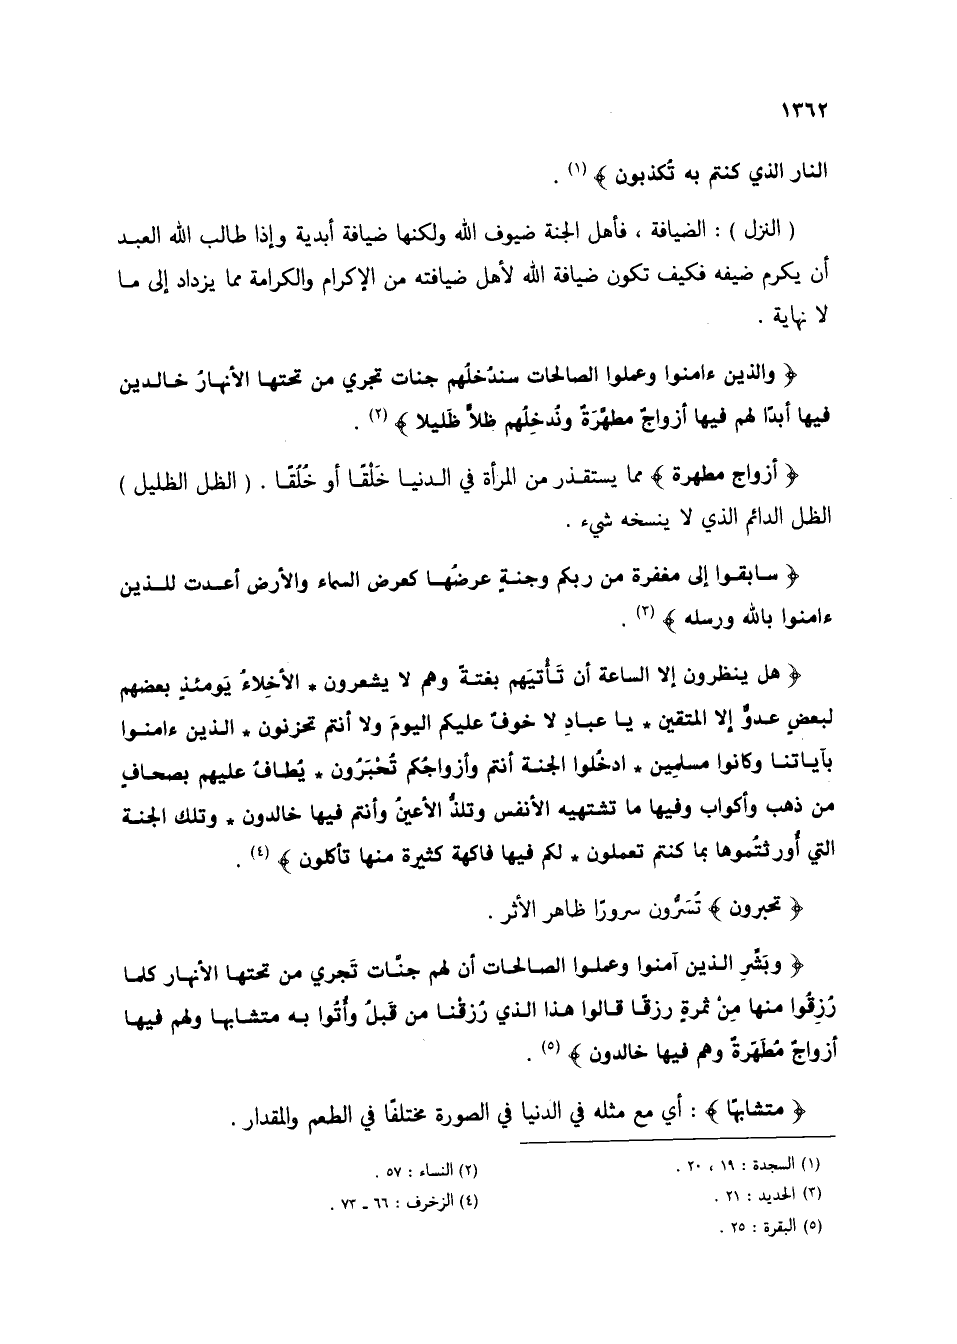 ١٣٦٢
النار الذي كنتم به تُكذبون ﴾ (١) .
( النزل ) : الضيافة ، فأهل الجنة ضيوف الله ولكنها ضيافة أبدية وإذا طالب الله العبد
أن يكرم ضيفه فكيف تكون ضيافة الله لأهل ضيافته من الإكرام والكرامة مما يزداد إلى ما
لا نهاية .
﴿ والذين ءامنوا وعملوا الصالحات سندُخلُهم جنات تجري من تحتها الأنهارُ خالدين
فيها أبدًا لهم فيها أزواجٌ مطهَّرَةٌ ونُدخِلُهم ظلاًّ ظَليلا ﴾ (٢) .
﴿ أزواج مطهرة ﴾ مما يستقذر من المرأة في الدنيا خَلْقًا أو خُلُقًا . ( الظل الظليل )
الظل الدائم الذي لا ينسخه شيء .
﴿ سابقوا إلى مغفرة من ربكم وجنةٍ عرضُها كعرض السماء والأرض أعدت للذين
ءامنوا بالله ورسله ﴾ (٣) .
﴿ هل ينظرون إلا الساعة أن تَأْتيَهم بغتةً وهم لا يشعرون * الأخِلاءُ يَومئذٍ بعضهم
لبعضٍ عدوٌّ إلا المتقين * يا عبادِ لا خوفٌ عليكم اليومَ ولا أنتم تحزنون * الذين ءامنوا
بآياتنا وكانوا مسلمين * ادخُلوا الجنة أنتم وأزواجُكم تُحْبَرُون * يُطافُ عليهم بصحافٍ
من ذهب وأكواب وفيها ما تشتهيه الأنفس وتلذُّ الأعينُ وأنتم فيها خالدون * وتلك الجنة
التي أُورثتُموها بما كنتم تعملون * لكم فيها فاكهة كثيرة منها تأكلون ﴾ (٤) .
﴿ تحبرون ﴾ تُسَرُّون سرورًا ظاهر الأثر .
﴿ وبَشِّرِ الذين آمنوا وعملوا الصالحات أن لهم جنَّات تَجري من تحتها الأنهار كلما
رُزِقُوا منها مِنْ ثمرةٍ رزقًا قالوا هذا الذي رُزقْنا من قَبلُ وأُتُوا به متشابها ولهم فيها
أزواجٌ مُطَهَّرةٌ وهم فيها خالدون ﴾ (٥) .
﴿ متشابهًا ﴾ : أي مع مثله في الدنيا في الصورة مختلفًا في الطعم والمقدار .
(١) السجدة : ١٩ ، ٢٠ .
(٢) النساء : ٥٧ .
(٣) الحديد : ٢١ .
(٤) الزخرف : ٦٦ ـ ٧٣ .
(٥) البقرة : ٢٥ .